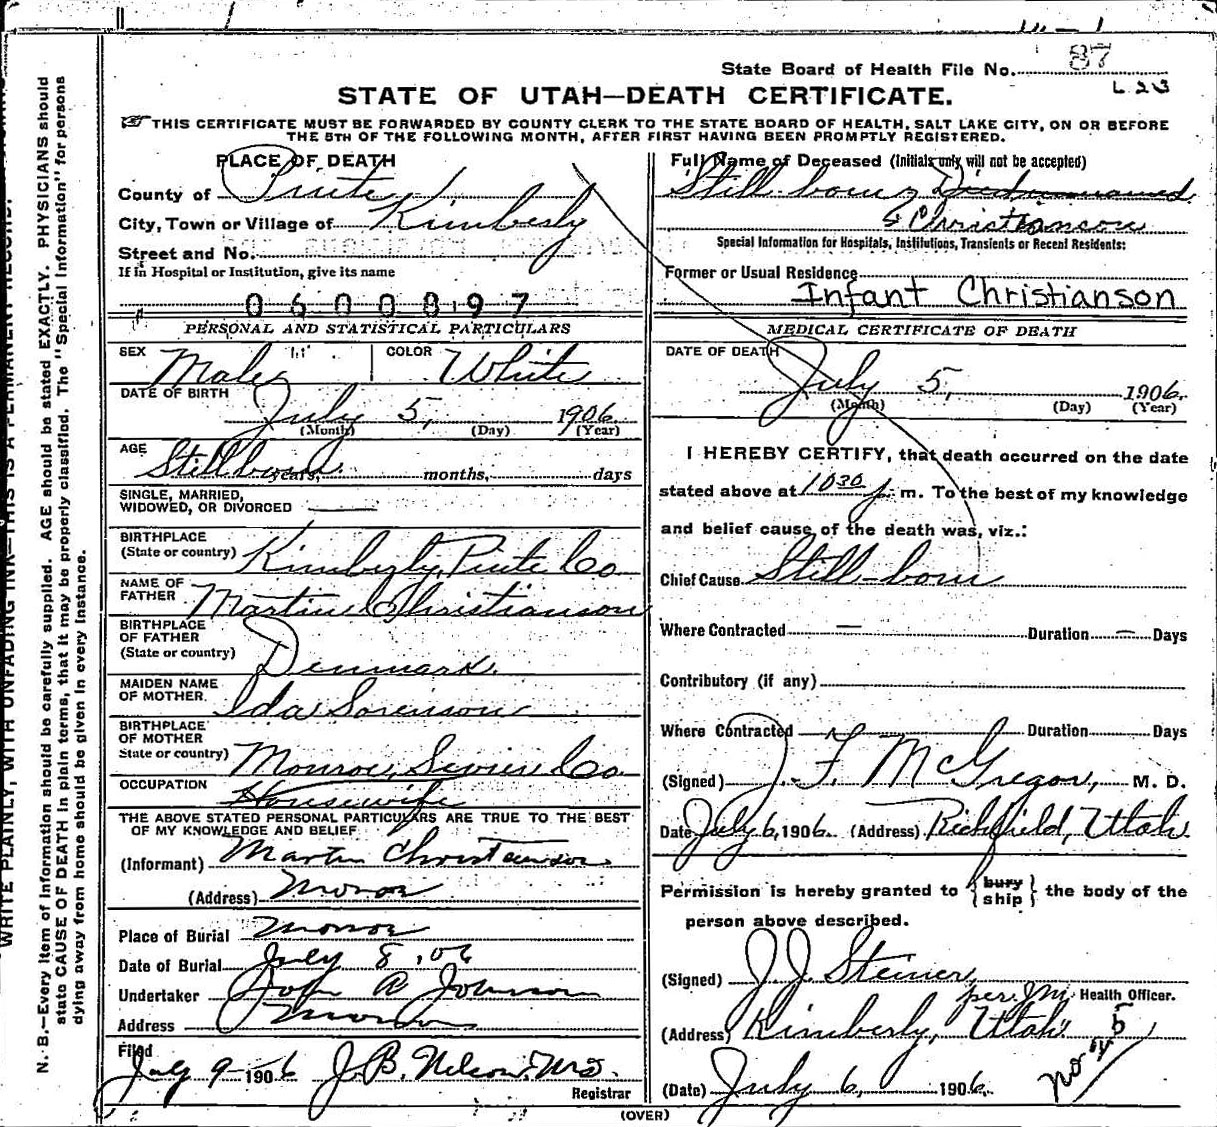 State Board of Health File No. 87
L 23
STATE OF UTAH—DEATH CERTIFICATE.
THIS CERTIFICATE MUST BE FORWARDED BY COUNTY CLERK TO THE STATE BOARD OF HEALTH, SALT LAKE CITY, ON OR BEFORE
THE 5TH OF THE FOLLOWING MONTH, AFTER FIRST HAVING BEEN PROMPTLY REGISTERED.
PLACE OF DEATH
County of Piute
City, Town or Village of Kimberly
Street and No.
If in Hospital or Institution, give its name
0600897
PERSONAL AND STATISTICAL PARTICULARS
SEX Male COLOR White
DATE OF BIRTH
July 5, 1906
(Month) (Day) (Year)
AGE
Stillborn years, months, days
SINGLE, MARRIED,
WIDOWED, OR DIVORCED
BIRTHPLACE
(State or country) Kimberly, Piute Co
NAME OF
FATHER Martin Christianson
BIRTHPLACE
OF FATHER
(State or country) Denmark.
MAIDEN NAME
OF MOTHER Ida Sorenson
BIRTHPLACE
OF MOTHER
State or country) Monroe, Sevier Co.
OCCUPATION Housewife
THE ABOVE STATED PERSONAL PARTICULARS ARE TRUE TO THE BEST
OF MY KNOWLEDGE AND BELIEF
(Informant) Martin Christianson
(Address) Monroe
Place of Burial Monroe
Date of Burial July 8, 06
Undertaker John A Johnson
Address Monroe
Filed
July 9 1906 J. B. Nelson. M.D.
Registrar
Full Name of Deceased (Initials only will not be accepted)
Still-born Died unnamed
Christianson
Special Information for Hospitals, Institutions, Transients or Recent Residents:
Former or Usual Residence
Infant Christianson
MEDICAL CERTIFICATE OF DEATH
DATE OF DEATH
July 5, 1906.
(Month) (Day) (Year)
I HEREBY CERTIFY, that death occurred on the date
stated above at 10 30 p. m. To the best of my knowledge
and belief cause of the death was, viz.:
Chief Cause Still-born
Where Contracted — Duration — Days
Contributory (if any)
Where Contracted Duration Days
(Signed) J. F. McGregor, M. D.
Date July 6, 1906. (Address) Richfield, Utah.
Permission is hereby granted to {bury ship} the body of the
person above described.
(Signed) J J Steiner,
per. Health Officer.
(Address) Kimberly, Utah. 5
(Date) July 6, 1906.
(OVER)
N. B.—Every item of information should be carefully supplied. AGE should be stated EXACTLY. PHYSICIANS should
state CAUSE OF DEATH in plain terms, that it may be properly classified. The "Special Information" for persons
dying away from home should be given in every instance.
WRITE PLAINLY, WITH UNFADING INK—THIS IS A PERMANENT RECORD.